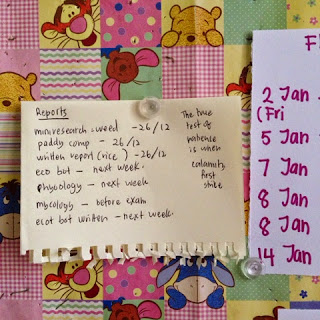 Reports
miniresearch weed - 26/12
paddy comp - 26/12
written report (rice) - 26/12
eco bot - next week.
phycology - next week
mycology - before exam
ecot bot written - next week.
The true
test of
patience
is when
calamity
first
strike
2 Jan
(Fri
5 Jan
7 Jan
8 Jan
8 Jan
14 Jan